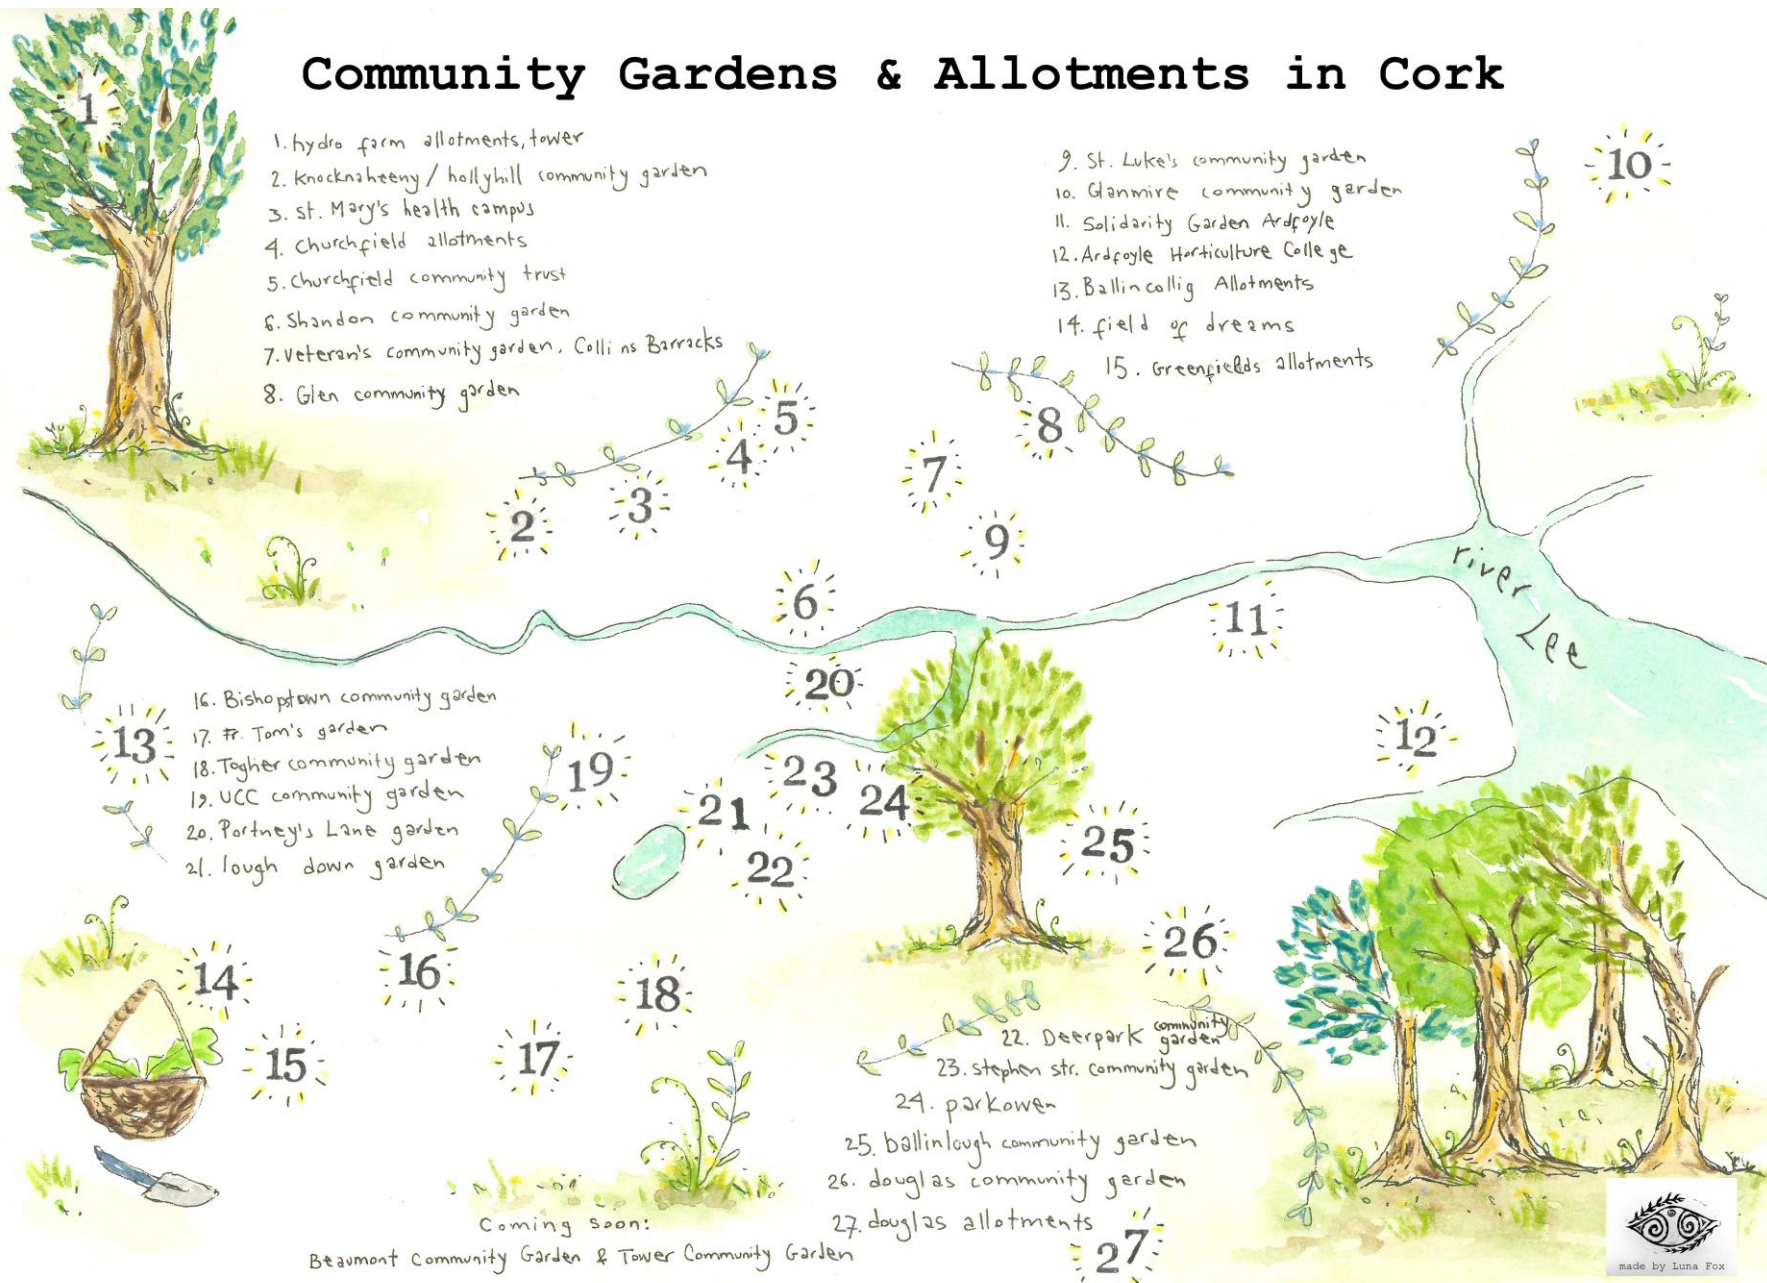 Community Gardens & Allotments in Cork
1. hydro farm allotments, tower
2. Knocknaheeny / hollyhill community garden
3. St. Mary's health campus
4. Churchfield allotments
5. Churchfield community trust
6. Shandon community garden
7. Veteran's community garden, Collins Barracks
8. Glen community garden
9. St. Luke's community garden
10. Glanmire community garden
11. Solidarity Garden Ardfoyle
12. Ardfoyle Horticulture College
13. Ballincollig Allotments
14. field of dreams
15. Greenfields allotments
1
10
5
8
4
7
3
2
9
6
11
river Lee
20
16. Bishopstown community garden
17. Fr. Tom's garden
18. Togher community garden
19. UCC community garden
20. Portney's Lane garden
21. lough down garden
13
12
19
23
24
21
25
22
26
14
16
18
15
17
22. Deerpark community garden
23. stephen str. community garden
24. parkowen
25. ballinlough community garden
26. douglas community garden
27. douglas allotments
27
Coming soon:
Beaumont Community Garden & Tower Community Garden
made by Luna Fox